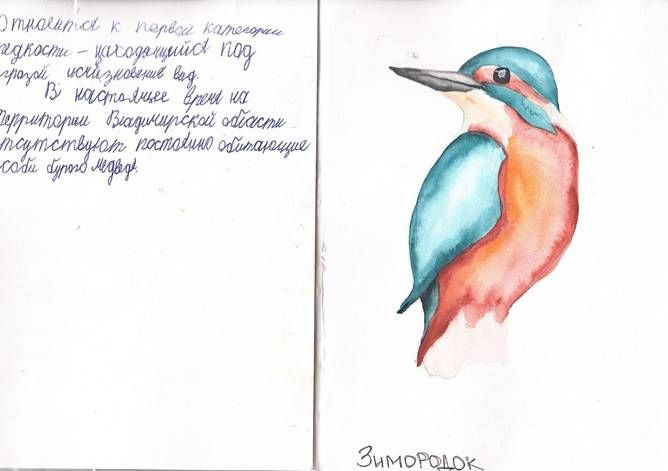 Относится к первой категории
редкости – находящийся под
угрозой исчезновения вид.
В настоящее время на
территории Владимирской области
отсутствуют постоянно обитающие
особи бурого медведя.
Зимородок